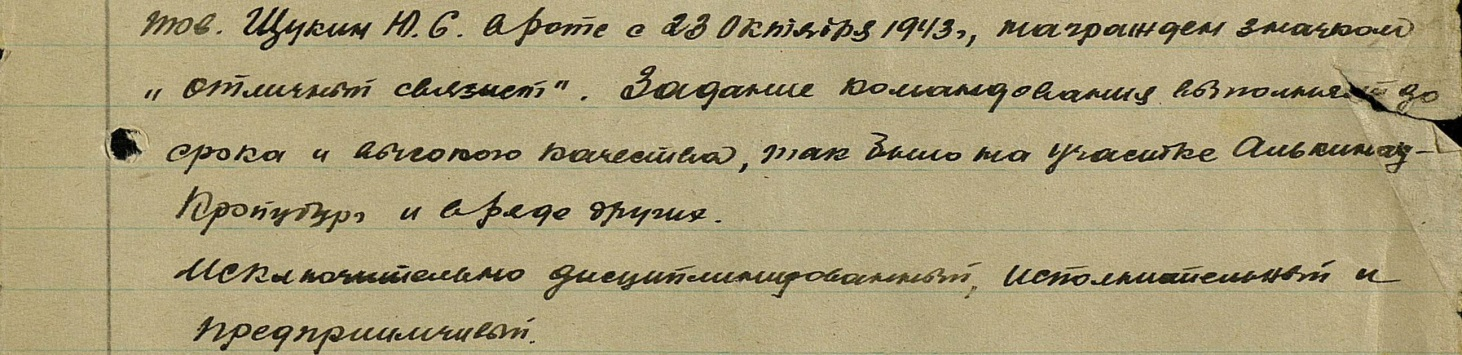 тов. Щукин Ю.С. в роте с 23 Октября 1943г., награжден значком
„отличный связист". Задание командования выполняет до
срока и высокого качества, так было на участке
и в ряде других.
Исключительно дисциплинированный, исполнительный и
предприимчивый.